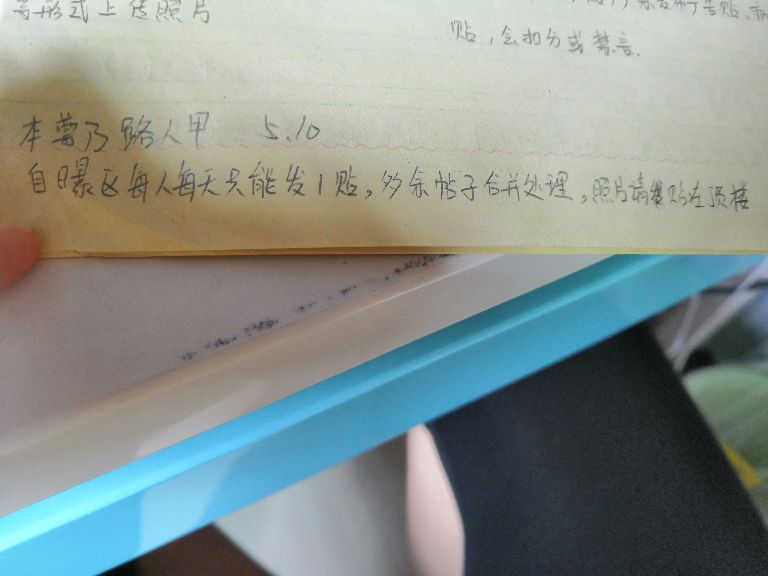 等形式上传照片
贴，会扣分或禁言.
本尊乃路人甲 5.10
自曝区每人每天只能发1贴，多余帖子合并处理，照片请发贴在顶楼